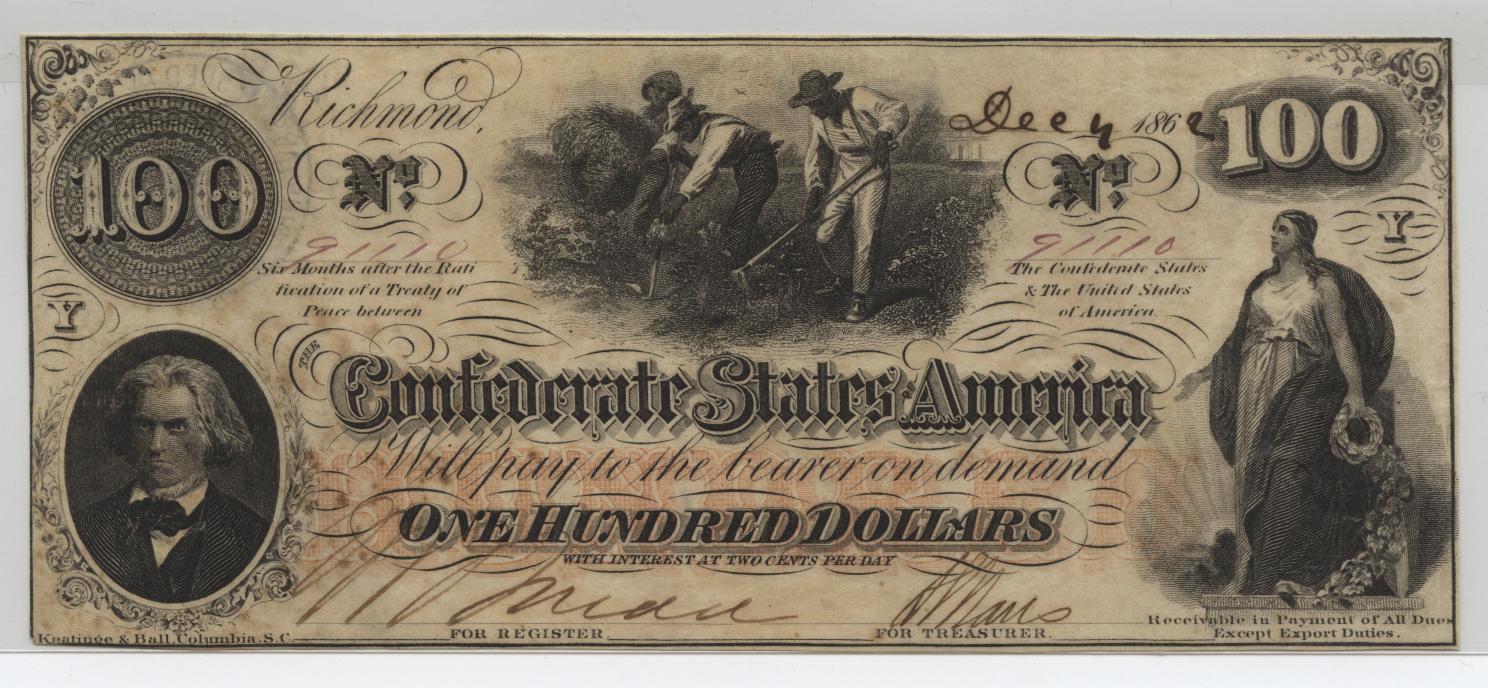 Richmond,
Dec 4 1862
100
100
No.
No.
91110
91110
Six Months after the Rati
fication of a Treaty of
Peace between
The Confederate States
& The United States
of America.
Y
Y
THE
Confederate States America
Will pay to the bearer on demand
ONE HUNDRED DOLLARS
WITH INTEREST AT TWO CENTS PER DAY
FOR REGISTER
FOR TREASURER.
Keatinge & Ball, Columbia, S.C.
Receivable in Payment of All Dues
Except Export Duties.